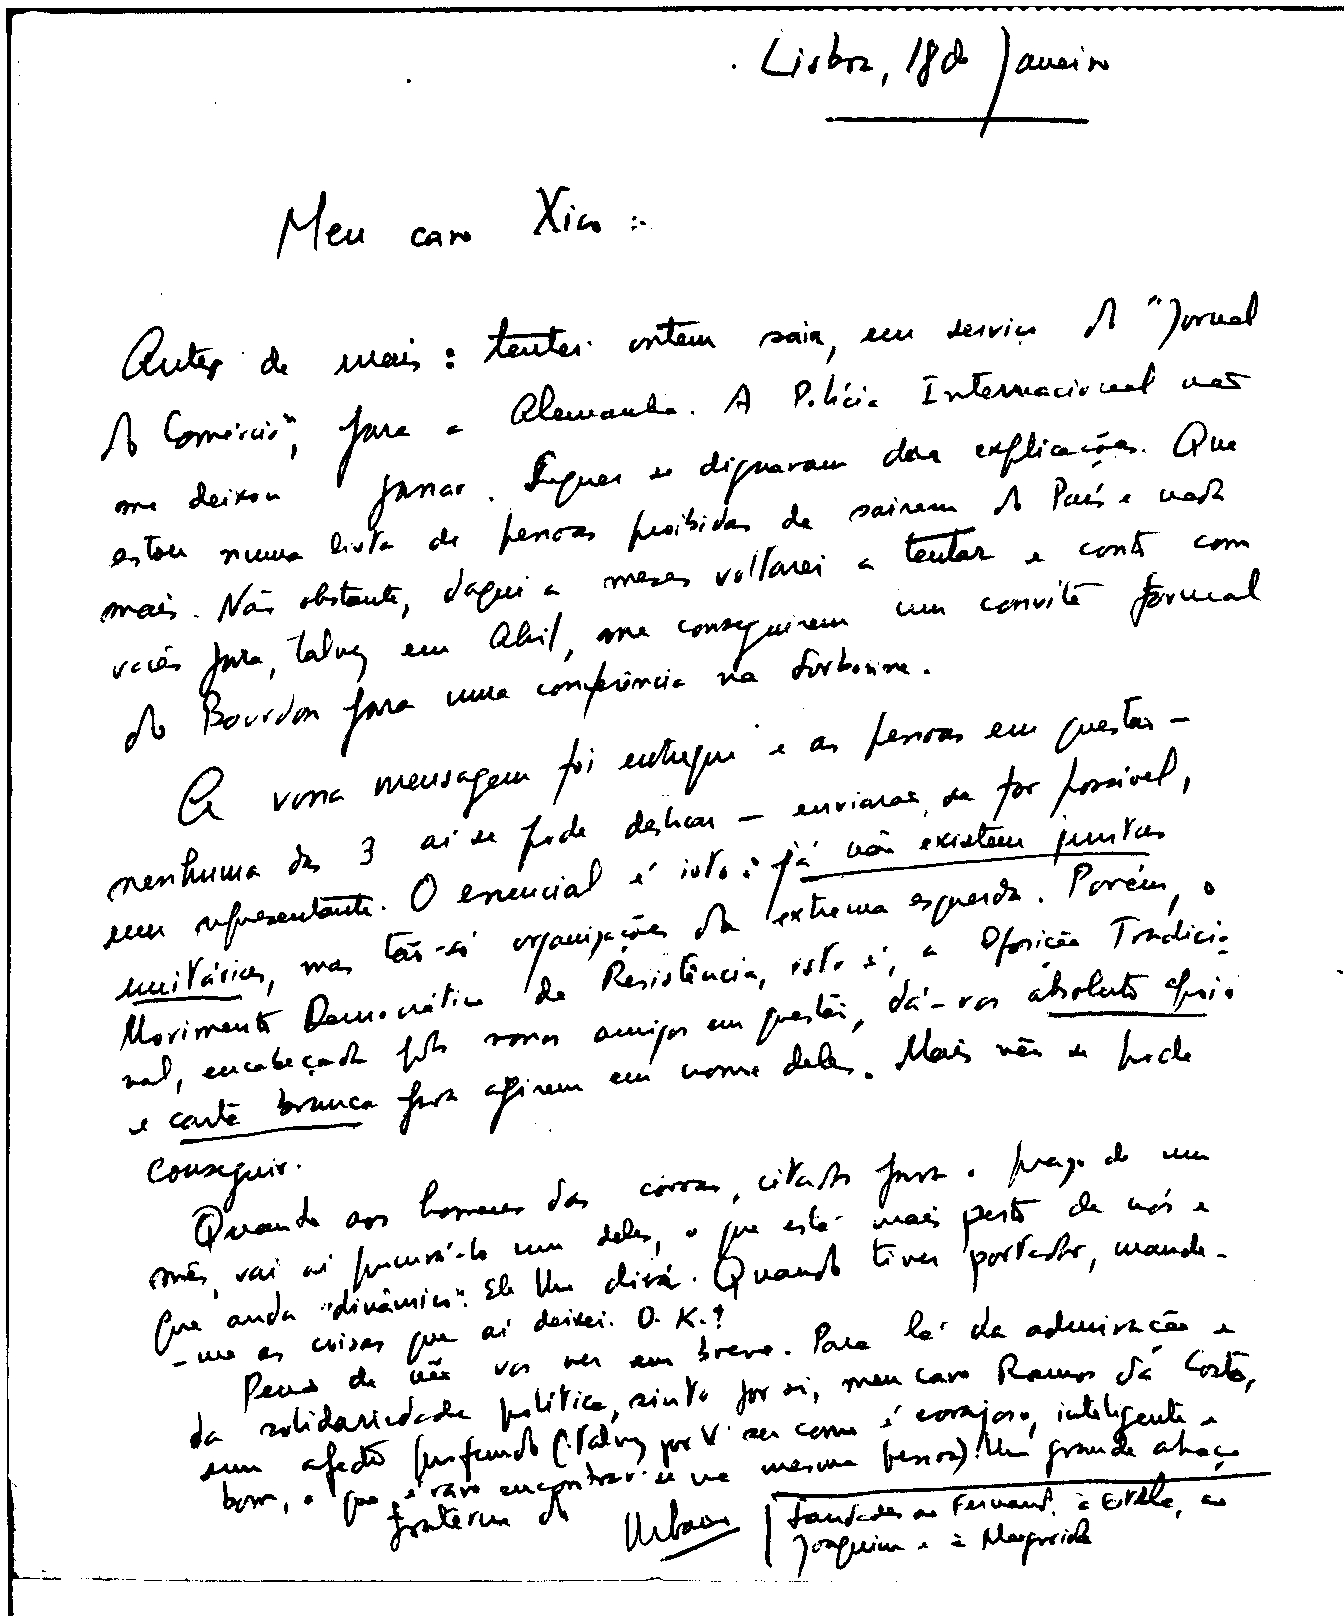 Lisboa, 18 de Janeiro
Meu caro Xico:
Antes de mais: tentei ontem sair, em serviço do "Jornal
do Comércio", para a Alemanha. A Polícia Internacional não
me deixou passar. Sequer se dignaram dar explicações. Que
estou numa lista de pessoas proibidas de sairem do País e nada
mais. Não obstante, daqui a meses voltarei a tentar e conto com
vocês para, talvez em Abril, me conseguirem um convite formal
do Bourdon para uma conferência na Sorbonne.
A vossa mensagem foi entregue e as pessoas em questão —
nenhuma das 3 aí se pode deslocar — enviarão, se for possível,
um representante. O essencial é isto: já não existem juntas
unitárias, mas tão-só organizações da extrema esquerda. Porém, o
Movimento Democrático de Resistência, isto é, a Oposição Tradicio-
nal, encabeçada pelos nossos amigos em questão, dá-vos absoluto apoio
e carta branca para agirem em nome deles. Mais não se pode
conseguir.
Quando aos homens das coisas, citado para o prazo de um
mês, vai aí procurá-lo um deles, o que está mais perto de nós e
que anda "dinâmico". Ele lhe dirá. Quando tiver portador, mande-
-me as coisas que aí deixei. O.K.?
Pena de não vos ver em breve. Para lá da admiração e
da solidariedade política, sinto por si, meu caro Ramos da Costa,
um afecto profundo (talvez por V. ser como é corajoso, inteligente e
bom, o que é raro encontrar-se na mesma pessoa). Um grande abraço
fraterno do
Urbano
Saudades ao Fernando, à Estela, ao
Joaquim e à Margarida